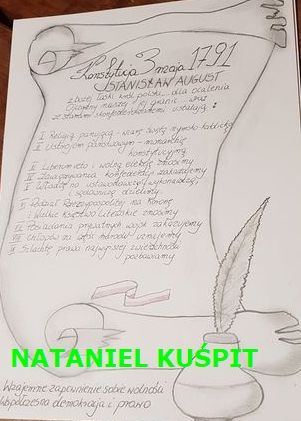 Konstytucja 3 maja 1791
STANISŁAW AUGUST
z bożej łaski król polski... dla ocalenia
Ojczyzny naszej i jej granic wraz
ze stanami skonfederowanemi ustalają:
I Religią panującą - wiarę świętą rzymsko katolicką
II Ustrojem państwowym - monarchię
konstytucyjną
III Liberum veto i wolną elekcję znosimy
IV Zawiązywania konfederacji zakazujemy
V Władzę na ustawodawczą, wykonawczą,
sądowniczą dzielimy
VI Podział Rzeczypospolitej na Koronę
i Wielkie Księstwo Litewskie znosimy
VII Posiadania prywatnych wojsk zakazujemy
VIII Chłopów za część narodu uznajemy
IX Szlachtę prawa najwyższej zwierzchności
pozbawiamy
NATANIEL KUŚPIT
Wzajemne zapewnienie sobie wolności
Współczesna demokracja i prawo